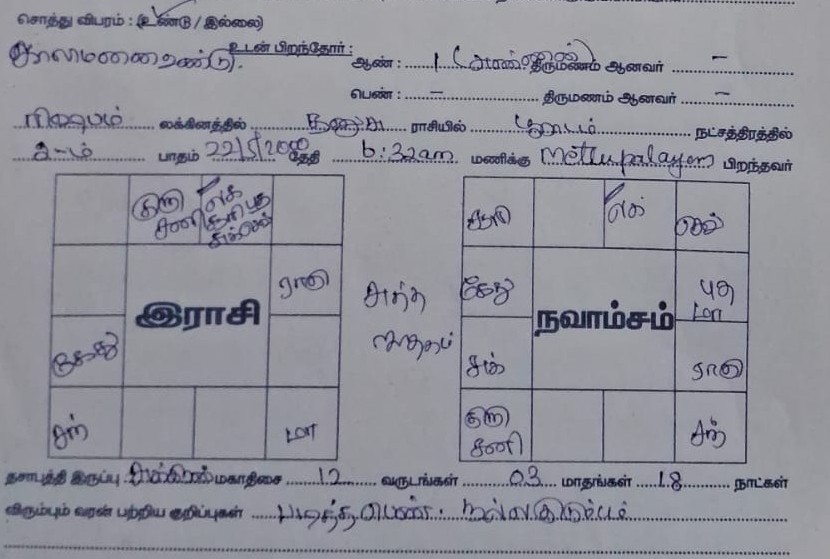 சொத்து விபரம் : (உண்டு / இல்லை)
உடன் பிறந்தோர் :
காலமனை உண்டு. ஆண் : 1 (அண்ணன்) திருமணம் ஆனவர் –
பெண் : – திருமணம் ஆனவர் –
ரிஷபம் லக்கினத்தில் தனுசு ராசியில் பூராடம் நட்சத்திரத்தில்
2-ம் பாதம் 22/5/2000 தேதி 6:32am மணிக்கு Mettupalayam பிறந்தவர்
குரு சனி லக் சூரி புத சுக்கிரன்
ராகு
இராசி
கேது
சந் மா
சுத்த ஜாதகம்
சூரி லக் செவ்
கேது புத மா
நவாம்சம்
சுக் ராகு
குரு சனி சந்
தசாபுத்தி இருப்பு சுக்கிரன் மகாதிசை 12 வருடங்கள் 03 மாதங்கள் 18 நாட்கள்
விரும்பும் வரன் பற்றிய குறிப்புகள் படித்த பெண். நல்ல குடும்பம்